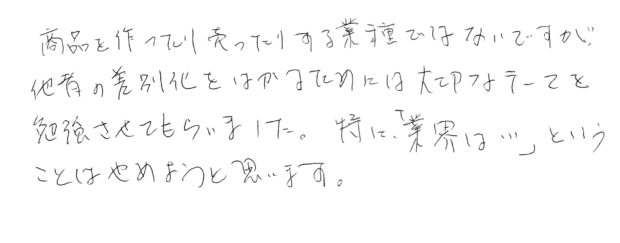 商品を作ったり売ったりする業種ではないですが、
他者の差別化をはかるためには大切なテーマを
勉強させてもらいました。特に、「業界は…」という
ことはやめようと思います。